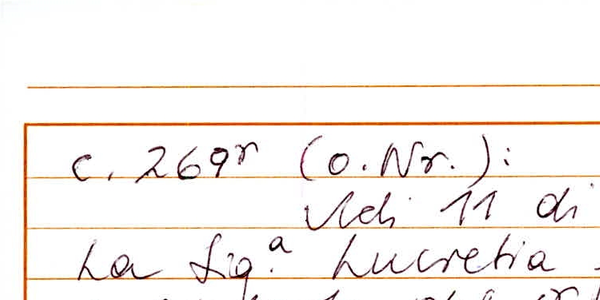 c. 269r (o. Nr.):
Adi 11 di
La Sig.a Lucretia